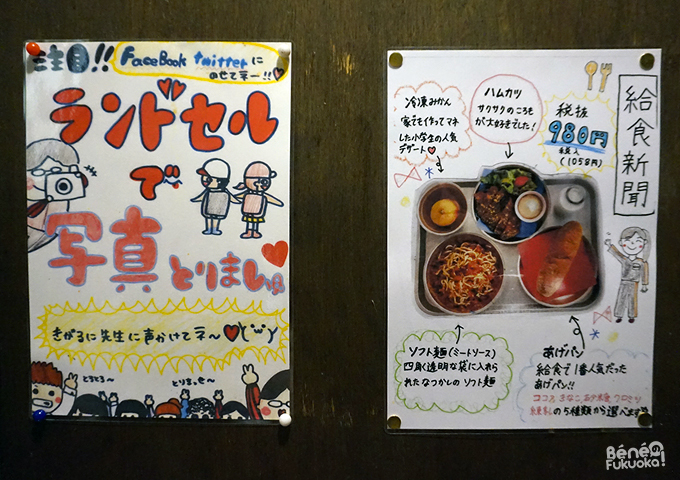 注目!!
FaceBook twitterに
のせてネー!!
ランドセル
で
写真とりましょ
きがるに先生に声かけてネ〜
とろとろ〜
とりまっせ〜
給食新聞
税抜
980円
税込
(1058円)
ハムカツ
サクサクのころも
が大好きでした!
冷凍みかん
家でも作ってマネ
した小学生の人気
デザート
ソフト麺(ミートソース)
四角い透明な袋に入れら
れたなつかしのソフト麺
あげパン
給食で1番人気だった
あげパン!!
ココア、きなこ、砂糖
の5種類から選べます
Béné
Fukuoka!